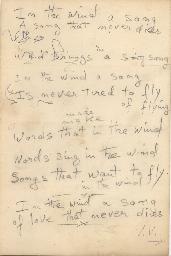 In the wind a song
A song that never dies
Wind brings in a sing song
In the wind a song
Is never tired to fly
of flying
words that in the wind
words sing in the wind
songs that want to fly
in the wind
In the wind a song
of love that never dies